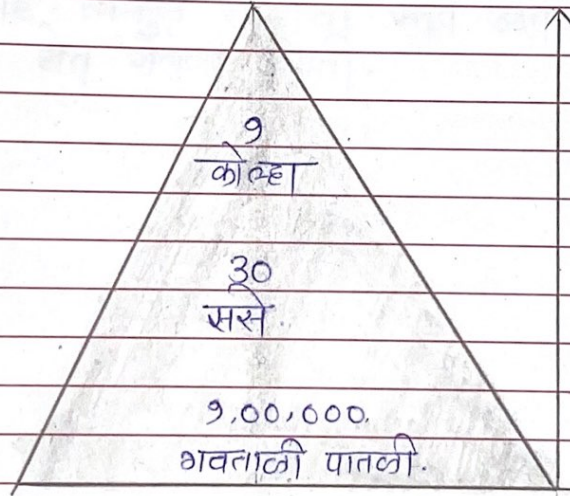 १
कोल्हा
३०
ससे.
१,००,०००.
गवताळी पातळी.